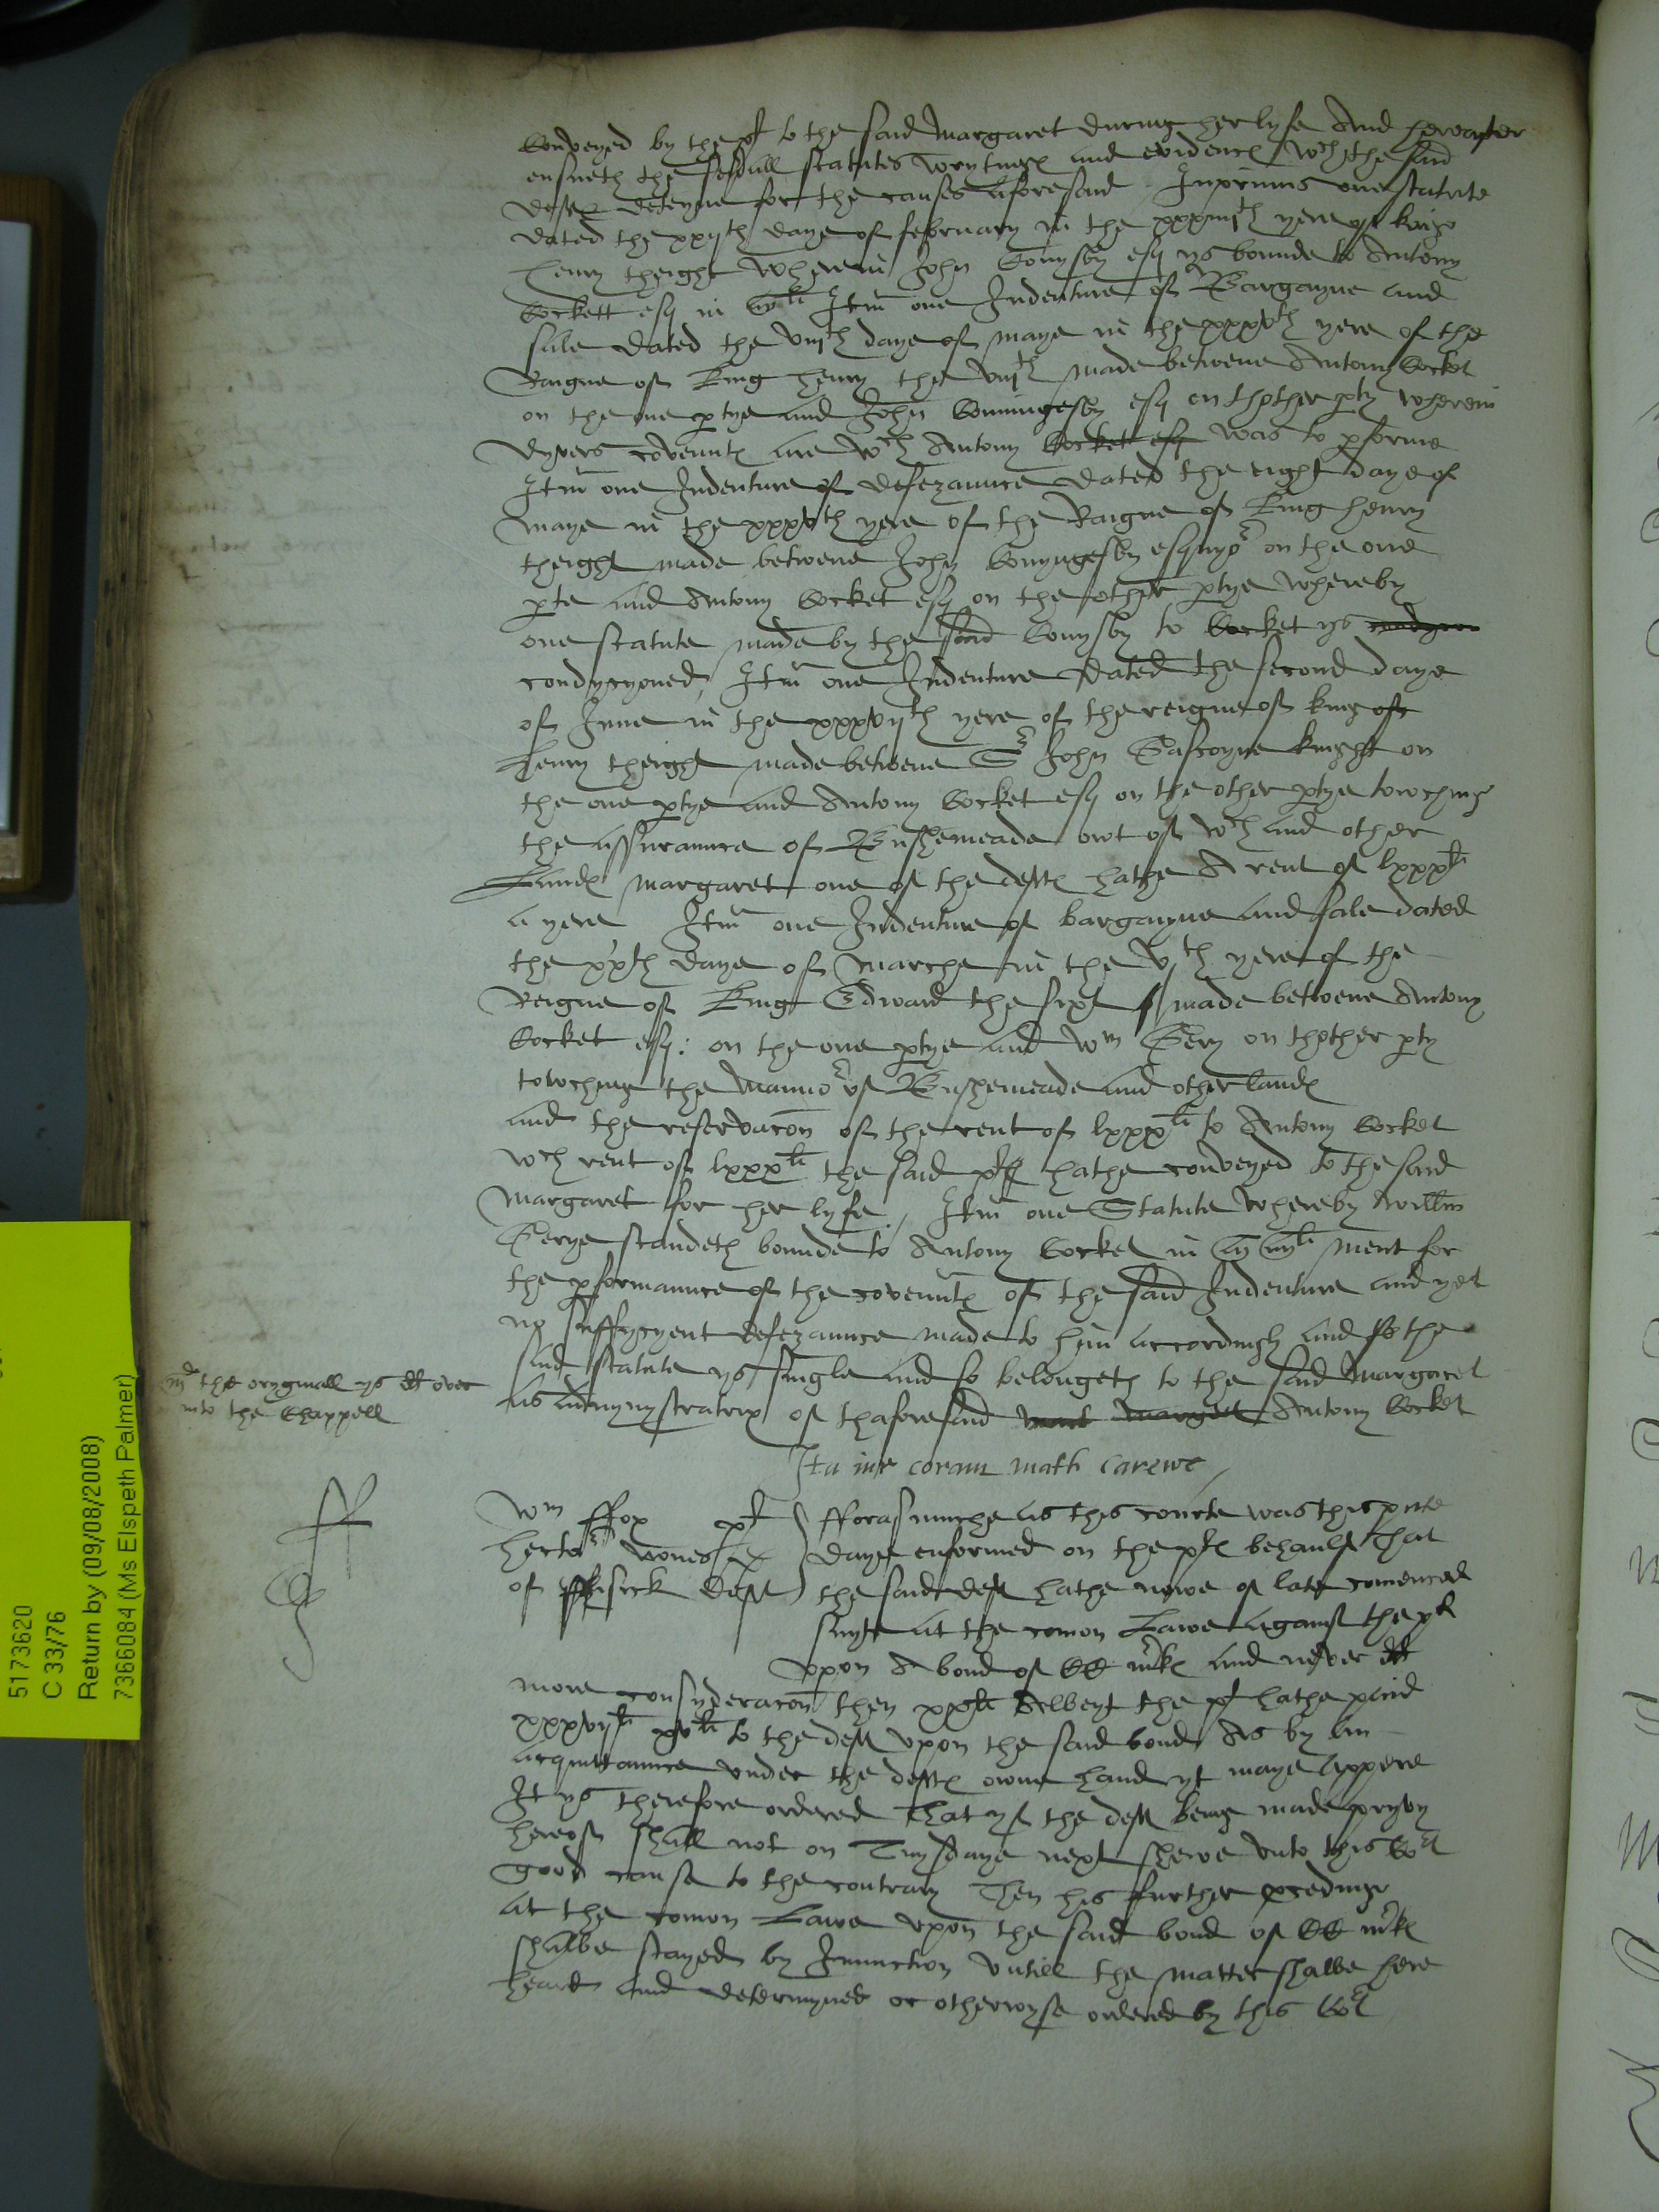 Conveyed by the pl to the said Margaret during her lyfe And hereafter
ensueth the sevall statutes wrytinge and evidence wch the said
deft deteyne for the causes aforesaid Inprimis one statute
dated the xxijth daye of february in the xxxiiijth yere of king
Henry theight wherein John Conysby esq ys bounde to Antony
Cockett esq in Itm one Indenture of Bargayne and
sale dated the viijth daye of maye in the xxxvth yere of the
Raigne of King Henry the viijth made betwene Antony Cocket
on the one ptye and John Conningesby esq on thother pty wherein
dyvers covennte are wch Antony Cocket esq was to pforme
Itm one Indenture of defezaunce dated the eight daye of
maye in the xxxvth yere of the Raigne of King Henry
theight made betwene John Conyngesby esquyor on the one
pte and Antony Cocket esq on the other ptye whereby
one statute made by the said Conysby to Cocket ys condycon
condycyoned, Itm one Indenture dated the second daye
of June in the xxxvijth yere of the reigne of king of
Henry theight made betwene Sr John Gascoyne knight on
the one ptye and Antony Cocket esq on the other ptye towching
the assuraunce of Busshemeade owt of wch and other
Lande Margaret one of the defte hathe A rent of lxxxli
a yere Itm one Indenture of bargayne and sale dated
the xxth daye of Marche in the vjth yere of the
Reigne of King Edward the sixt made betwene Antony
Cocket esq: on the one ptye and Wm Gery on thother pty
towching the Mannor of Busshemeade and other lande
and the reservacon of the rent of lxxxli to Antony Cocket
wch rent of lxxxli the said pl hathe conveyed to the said
Margaret for her lyfe, Itm one Statute whereby Willm
Gerye standeth bounde to Antony Cocket in ment for
the pformaunce of the covennte of the said Indenture and yet
no suffycyent defezaunce made to him accordingly and so the
said statute ys single and so belongeth to the said Margaret
as admynystratrix of thaforesaid Margett Antony Cocket
md the orygynall ys dd over
into the Chappell
Ita iur coram Math Carewe
Wm ffox pl
Hector
of ffisick deft
fforasmuche as this courte was this pnte
daye enformed on the plte behaulf That
the said deft hathe nowe of late comenced
suyte at the comon Lawe against the pl
vpon A bond of CC mke and never dd
more consyderacon then xxli Albeyt the pl hathe paid
xxxvijli xvli to the deft vpon the said bond As by an
acquittaunce vnder the defte owne hand yt maye appere
It ys therefore ordered That yf the deft being made pryvy
hereof shall not on Tuysdaye next shewe vnto this Cort
good cause to the contrary Then his further pceding
at the comon Lawe vpon the said bond of CC mke
shalbe stayed by Iniunction vntill the matter shalbe here
heard and determyned or otherwyse ordered by this Cort
5173620
C 33/76
Return by (09/08/2008)
7366084 (Ms Elspeth Palmer)